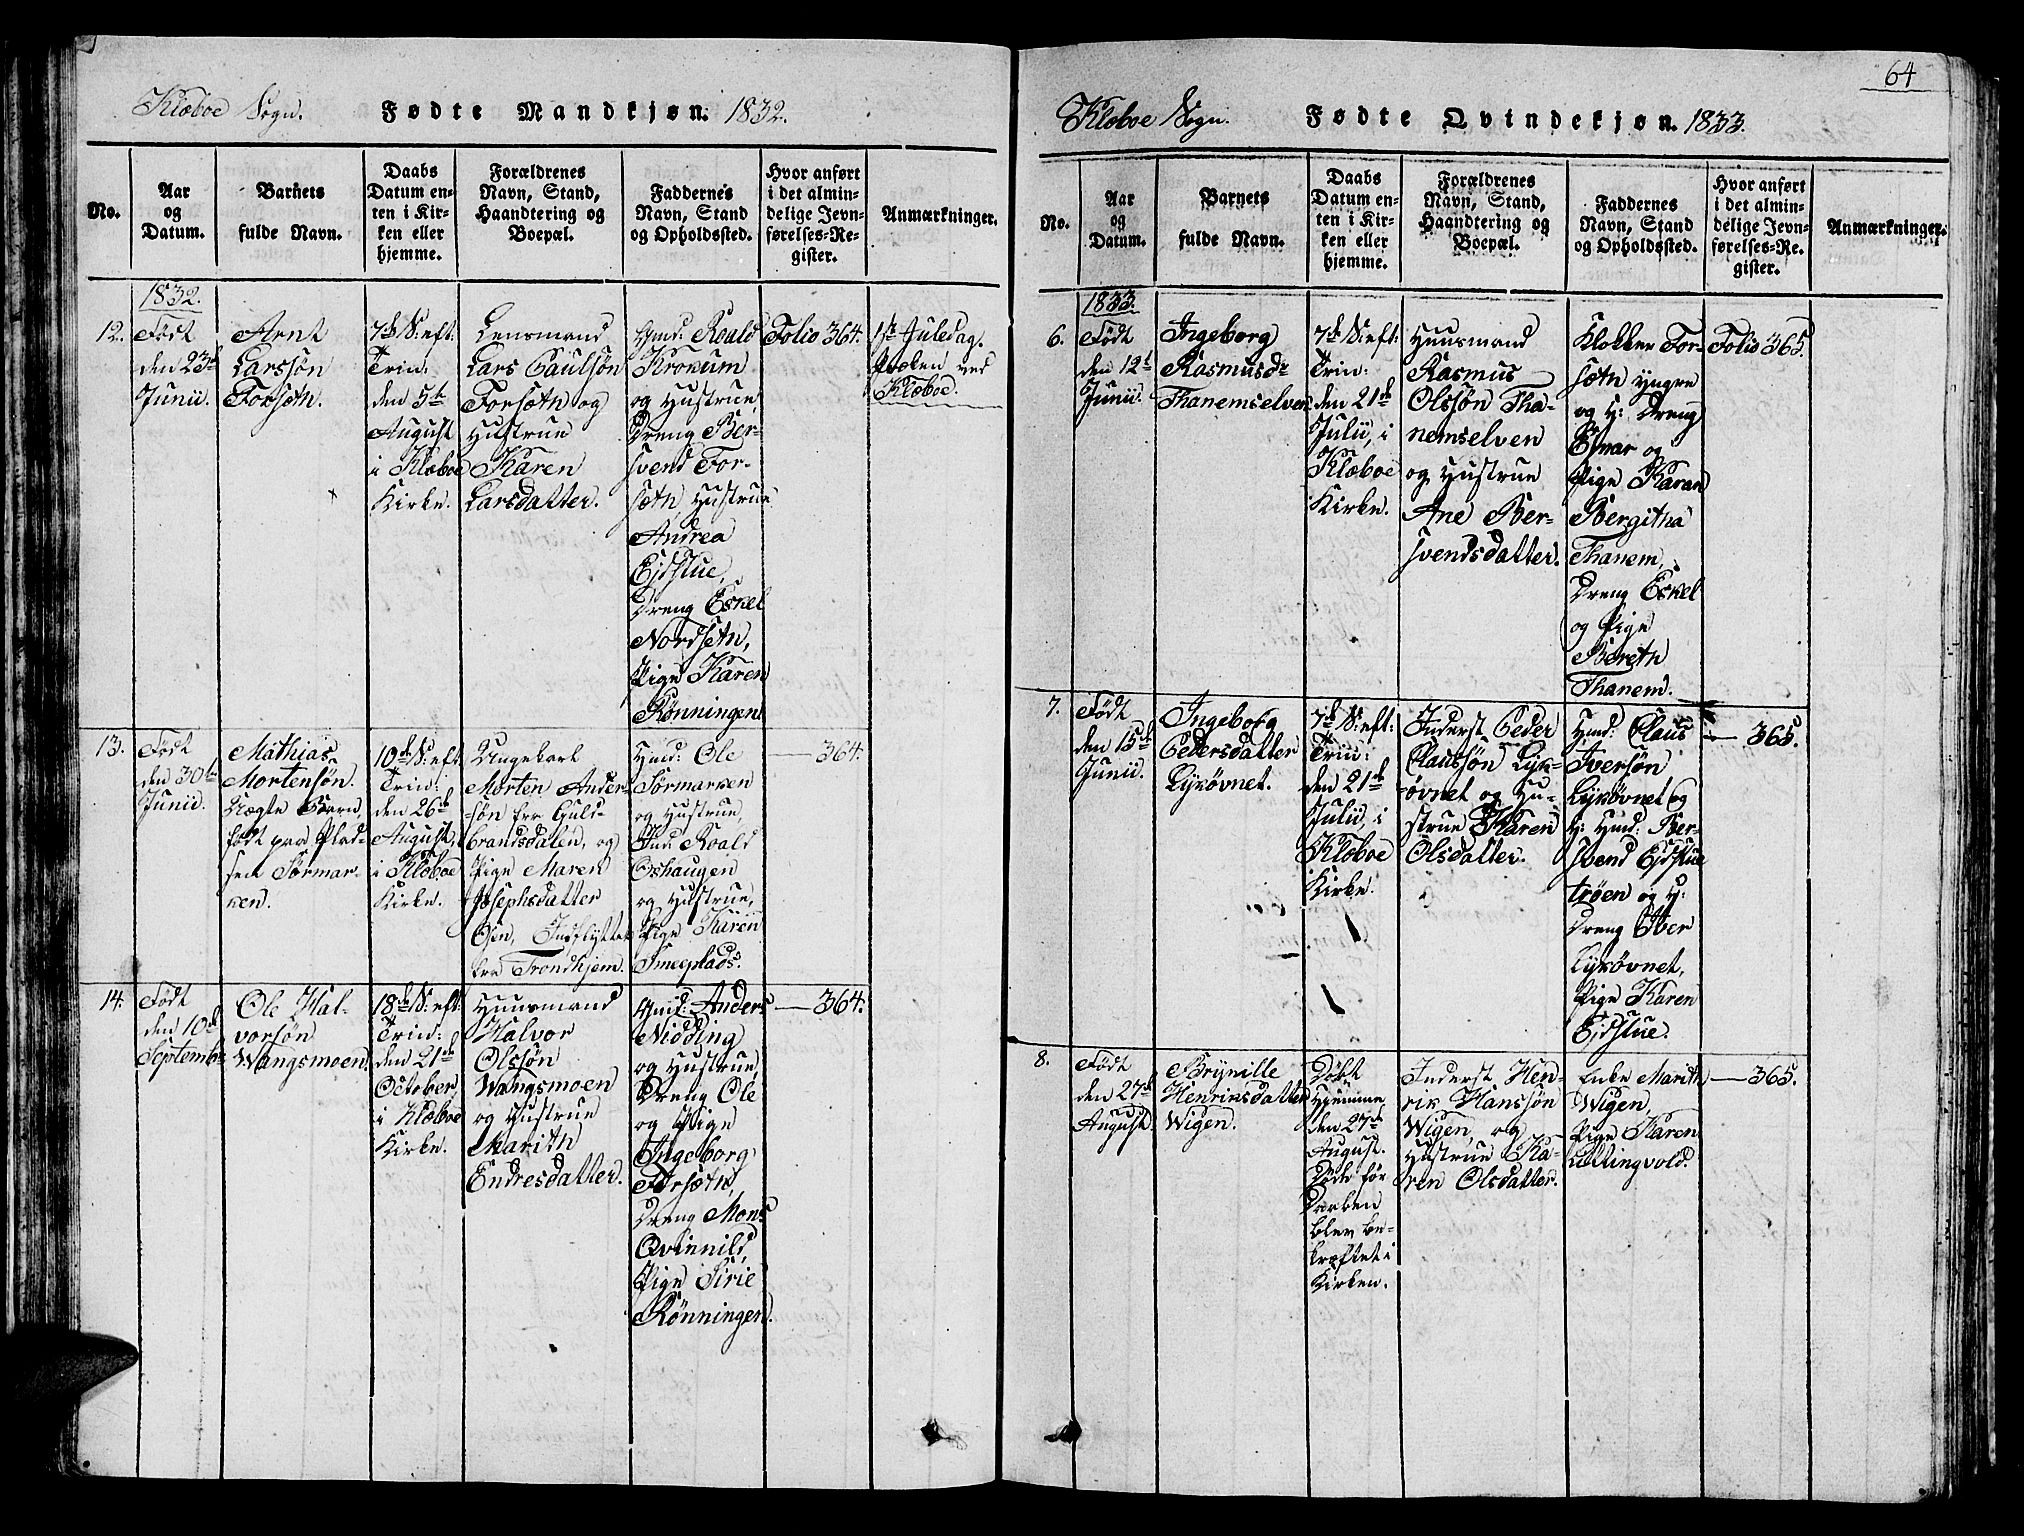 Klæboe Sogn. Fødte Mandkjøn. 1832.
No.
Aar
og
Datum.
Barnets
fulde Navn.
Daabs
Datum en-
ten i Kir-
ken eller
hjemme.
Forældrenes
Navn, Stand,
Haandtering og
Boepæl.
Faddernes
Navn, Stand
og Opholdssted.
Hvor anført
i det almin-
delige Jevn-
førelses-Re-
gister.
Anmærkninger.
1832.
12.
Født
den 23de
Junii.
Arnt
Larssøn
Forsæth.
7de S: eft:
Trin:
den 5te
August
i Klæboe
Kirke.
Lensmand
Lars Paulsøn
Forsæth og
Hustrue
Karen
Larsdatter.
Gmd: Roald
Krokum
og Hustrue,
Dreng Ber-
svend For-
sæth, Hustrue
Andrea
Ejdstue,
Dreng Eskel
Nordseth,
Pige Karen
Rønningen.
Folio 364.
1ste Juledag.
ved
Klæboe.
13.
Født
den 30te
Junii.
Mathias
Mortensøn.
Uægte Barn,
født paa Plad-
sen Sørmar-
ken.
10de S: eft
Trin:
den 26de
August,
i Klæboe
Kirke.
Ungekarl
Morten Ander-
søn fra Guld-
brandsdalen, og
Pige Maren
Josephsdatter
Osen, Indflyttet
fra Trondhjem.
Hmd: Ole
Sørmarken
og Hustrue,
Ind: Roald
Oshaugen
og Hustrue,
Pige Karen
Smeeplads.
364.
14.
Født
den 10de
Septembr
Ole Hal-
vorsøn
Wangsmoen.
18de S: eft:
Trin:
den 21de
October,
i Klæboe
Kirke.
Huusmand
Halvor
Olssøn
Wangsmoen
og Hustrue
Marith
Endresdatter.
Gmd: Anders
Nidding
og Hustrue,
Dreng Ole
og Pige
Ingeborg
Forsæth,
Dreng Mons
Qvinnild,
Pige Sirie
Rønningen.
364.
64
Klæboe Sogn. Fødte Qvindekjøn. 1833.
No.
Aar
og
Datum.
Barnets
fulde Navn.
Daabs
Datum en-
ten i Kir-
ken eller
hjemme.
Forældrenes
Navn, Stand,
Haandtering og
Boepæl.
Faddernes
Navn, Stand
og Opholdssted.
Hvor anført
i det almin-
delige Jevn-
førelses-Re-
gister.
Anmærkninger.
1833.
6.
Født
den 12te
Junii.
Ingeborg
Rasmusdr
Thanemselven.
7de S: eft:
Trin:
den 21de
Julii, i
Klæboe
Kirke.
Huusmand
Rasmus
Olssøn Tha-
nemselven
og Hustrue
Ane Ber-
svendsdatter.
Klokker For-
sæth yngre
og H: Dreng
Ejnar og
Pige Karan
Bergitha
Thanem,
Dreng Eskel
og Pige
Bereth
Thanem.
Folio 365.
7.
Født
den 15de
Junii.
Ingeborg
Pedersdatter
Lysøvnet.
7de S: eft:
Trin:
den 21de
Julii, i
Klæboe
Kirke.
Inderst Peder
Claussøn Lys-
øvnet og Hu-
strue Karen
Olsdatter.
Hmd: Claus
Iversøn
Lysøvnet og
H: Hmd: Ber-
svend Ejdstue
trøen og H:
Dreng Iver
Lysøvnet,
Pige Karen
Ejdstue.
365.
8.
Født
den 27de
August.
Brynille
Henriksdatter
Wigen.
Døbt
Hjemme
den 27de
August.
Døde før
Daaben
blev be-
kræftet i
Kirken.
Inderst Hen-
rik Hanssøn
Wigen og
Hustrue Ka-
ren Olsdatter.
Enke Marith
Wigen,
Pige Karen
Ullingvold.
365.